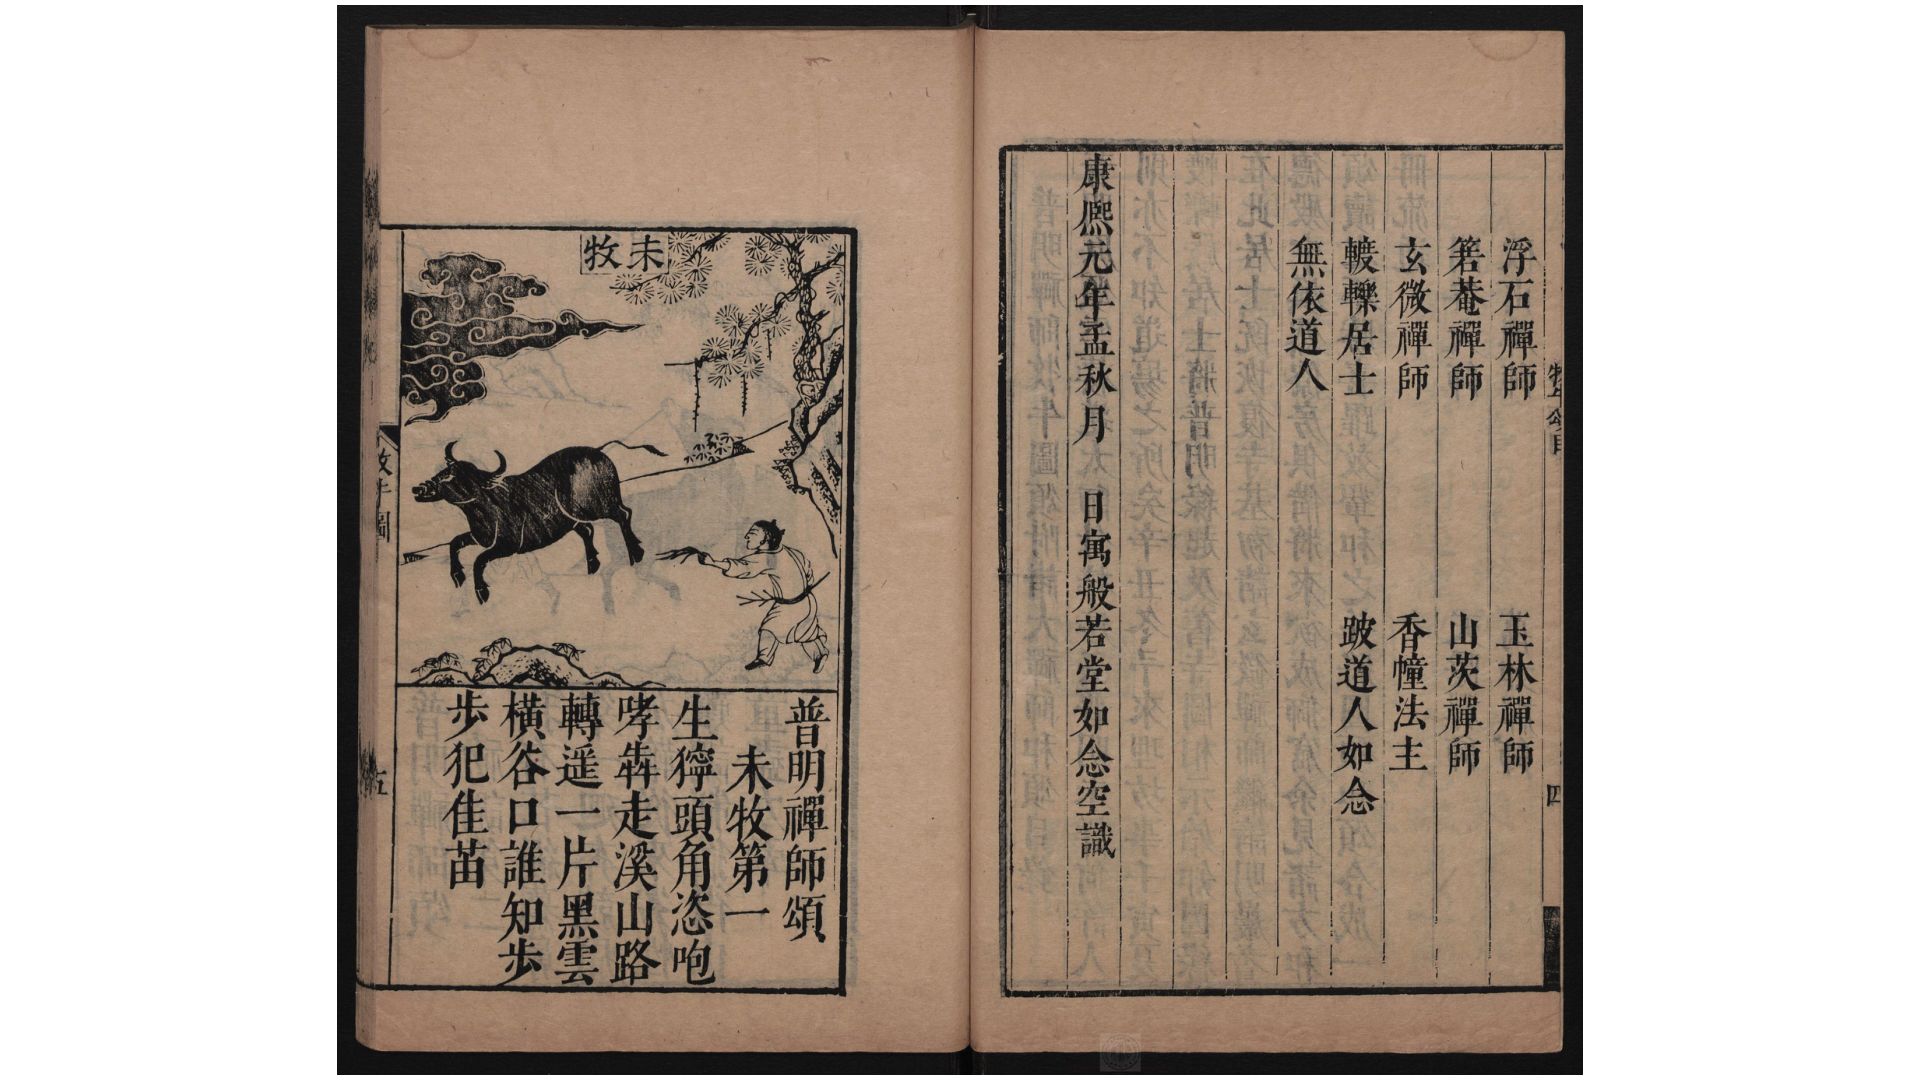 浮石禪師 玉林禪師
箬菴禪師 山茨禪師
玄微禪師 香幢法主
轆轢居士 跛道人如念
無依道人
康熈元年孟秋月 日寓般若堂如念空識
四
未牧
普明禪師頌
未牧第一
生獰頭角恣咆
哮犇走溪山路
轉遥一片黑雲
橫谷口誰知步
步犯佳苗
牧牛圖
五